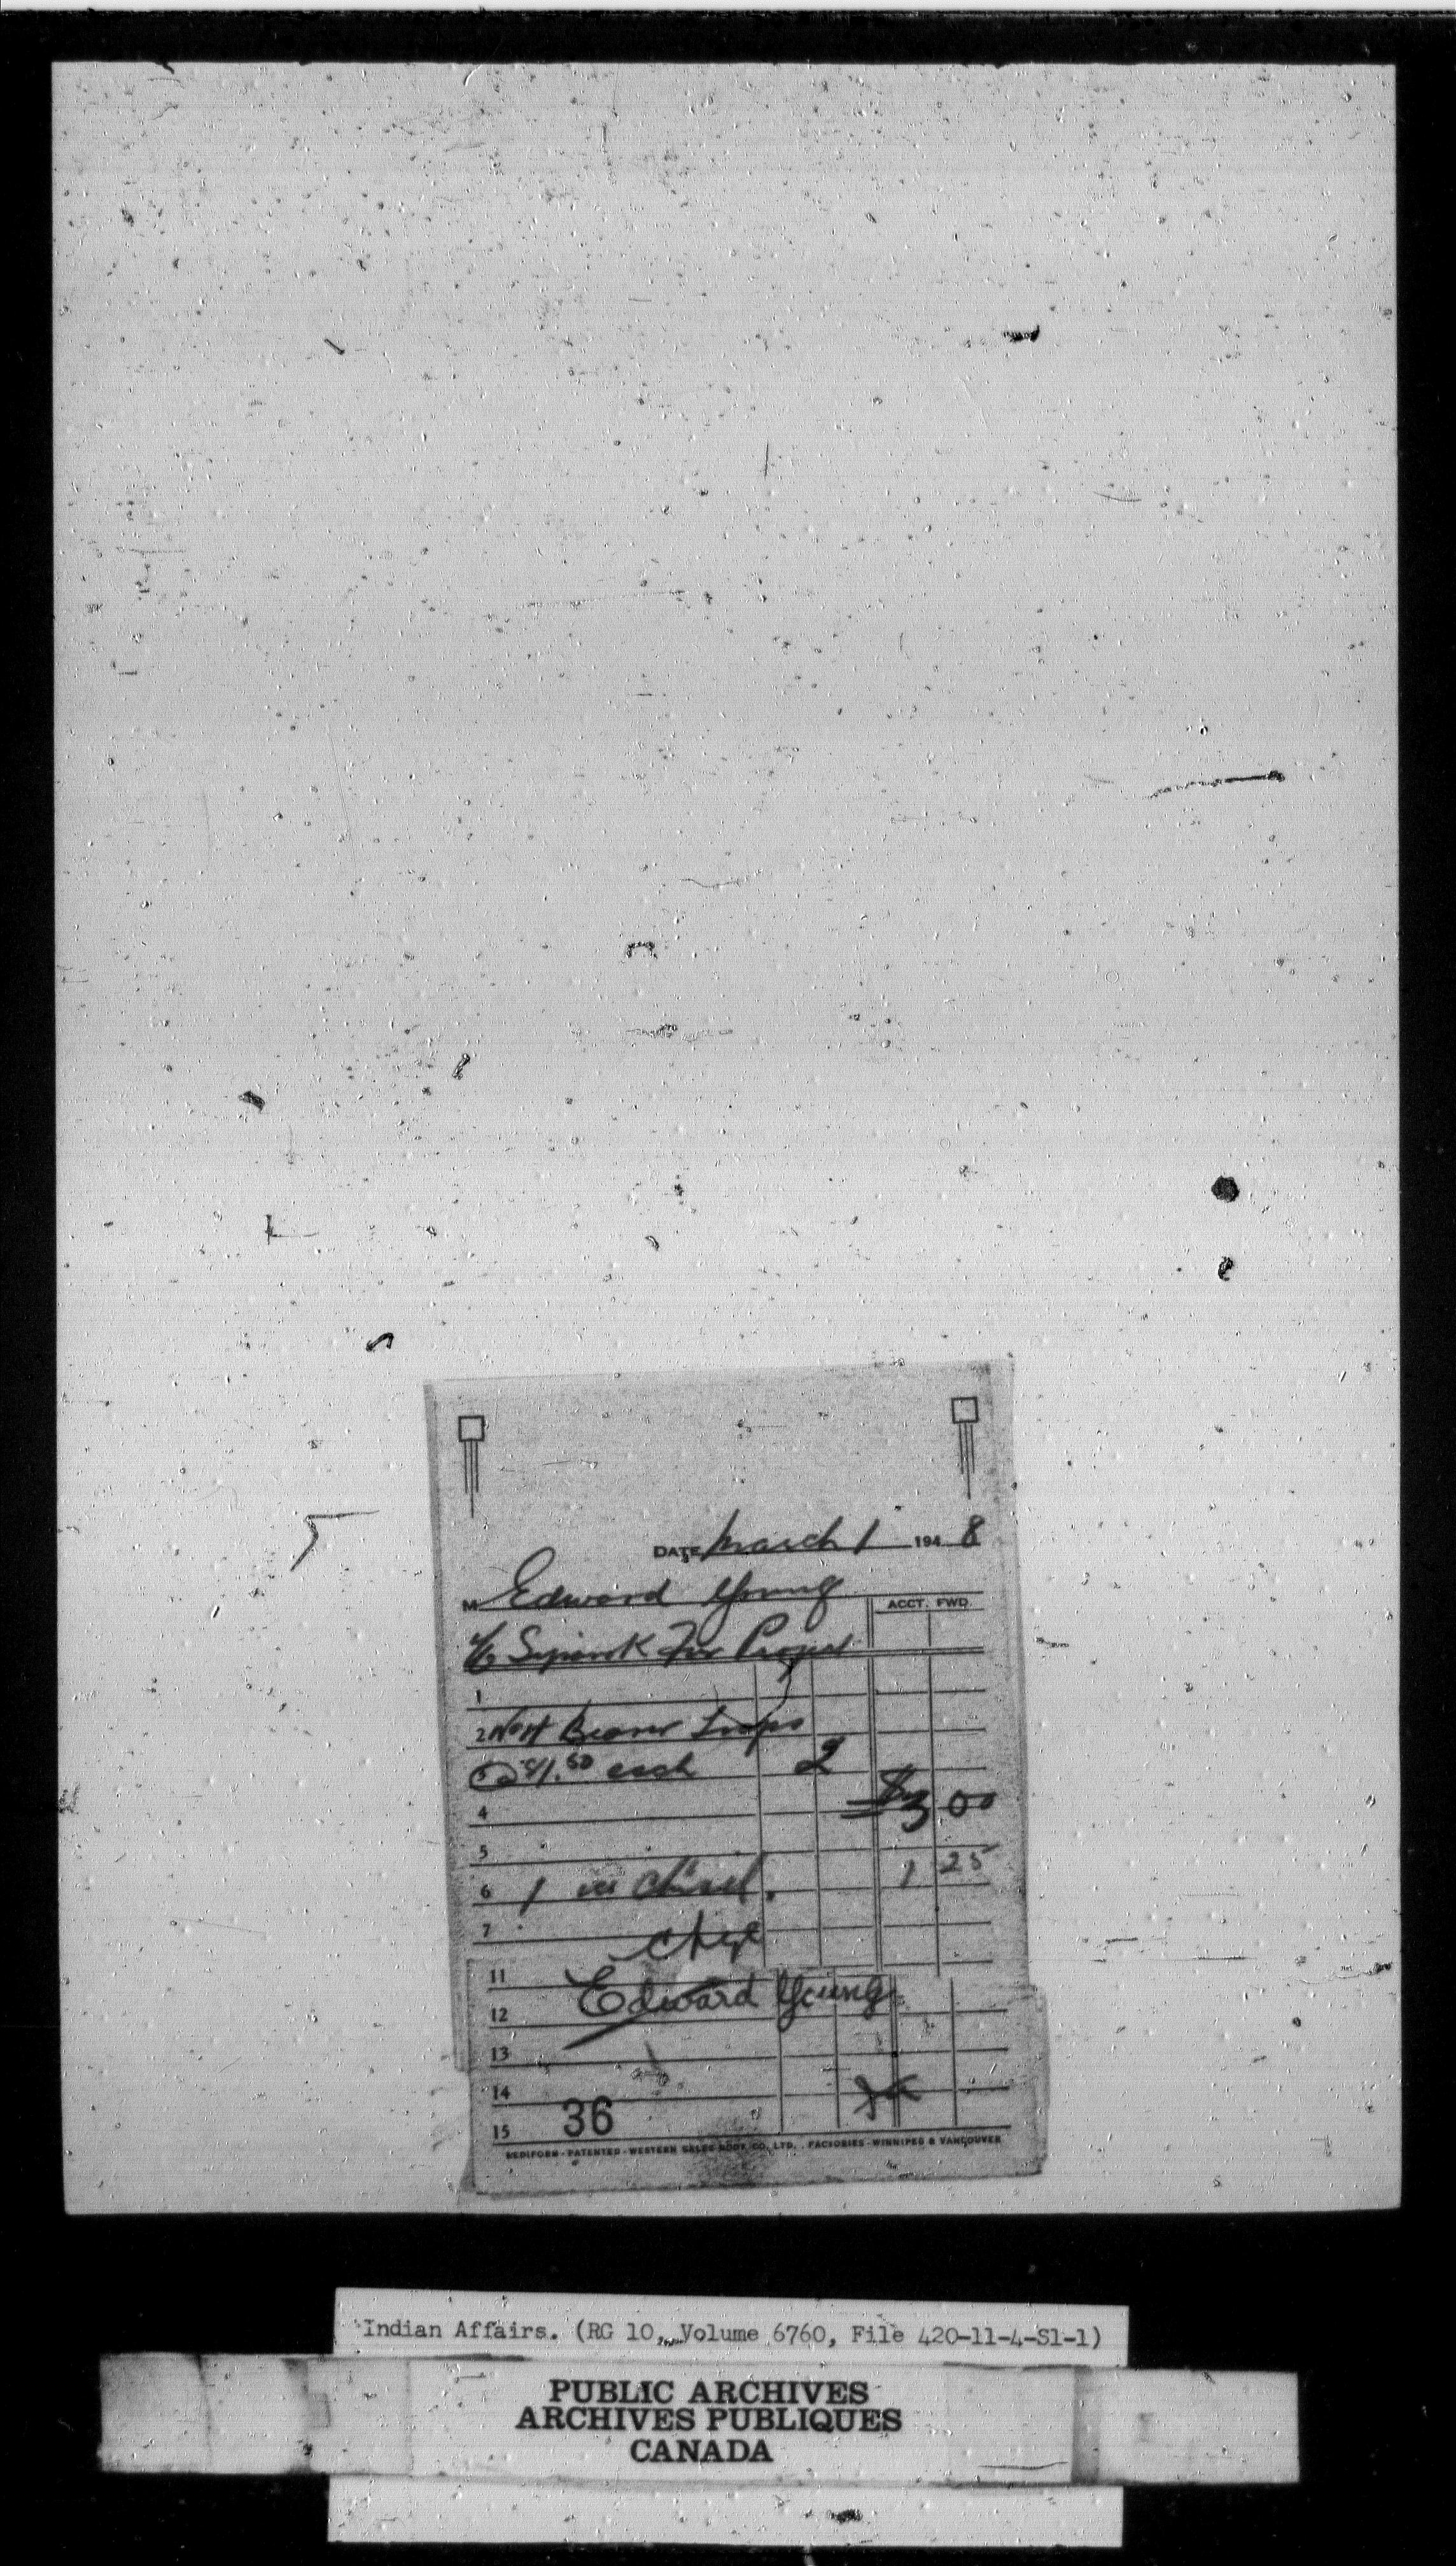 DATE March 1 194 8
M Edward Young
ACCT. FWD.
% Sipiwesk Fur Project
1
2 No 14 Beaver Traps
3 @ $1.50 each 2
4 $3 00
5
6 1 ice chisel. 1 25
7
chge
11
Edward Young
12
13
14
15 36
REDIFORM - PATENTED - WESTERN SALES BOOK CO. LTD. . FACTORIES - WINNIPEG & VANCOUVER
Indian Affairs. (RG 10, Volume 6760, File 420-11-4-S1-1)
PUBLIC ARCHIVES
ARCHIVES PUBLIQUES
CANADA